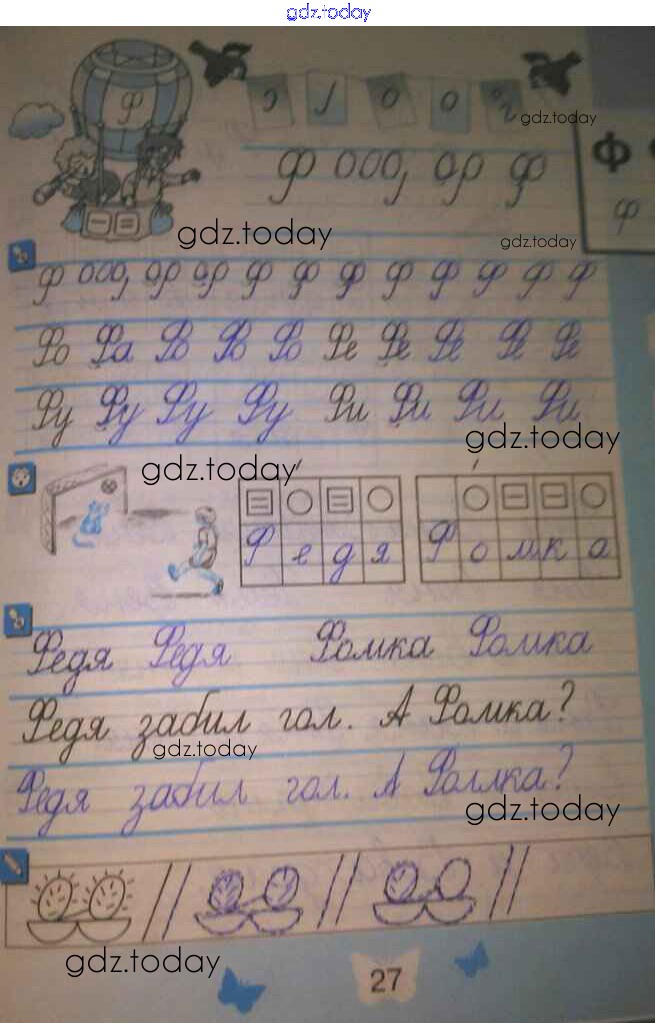 gdz.today
ф
gdz.today
ф
Ф
ф
gdz.today
gdz.today
ф ф ф ф ф ф ф ф ф
Фо Фа Фо Фо Фо Фе Фе Фе Фе Фе
Фу Фу Фу Фу Фи Фи Фи Фи
gdz.today
gdz.today
Федя Фомка
Федя Федя Фомка Фомка
Федя забил гол. А Фомка?
gdz.today
Федя забил гол. А Фомка?
gdz.today
gdz.today
27